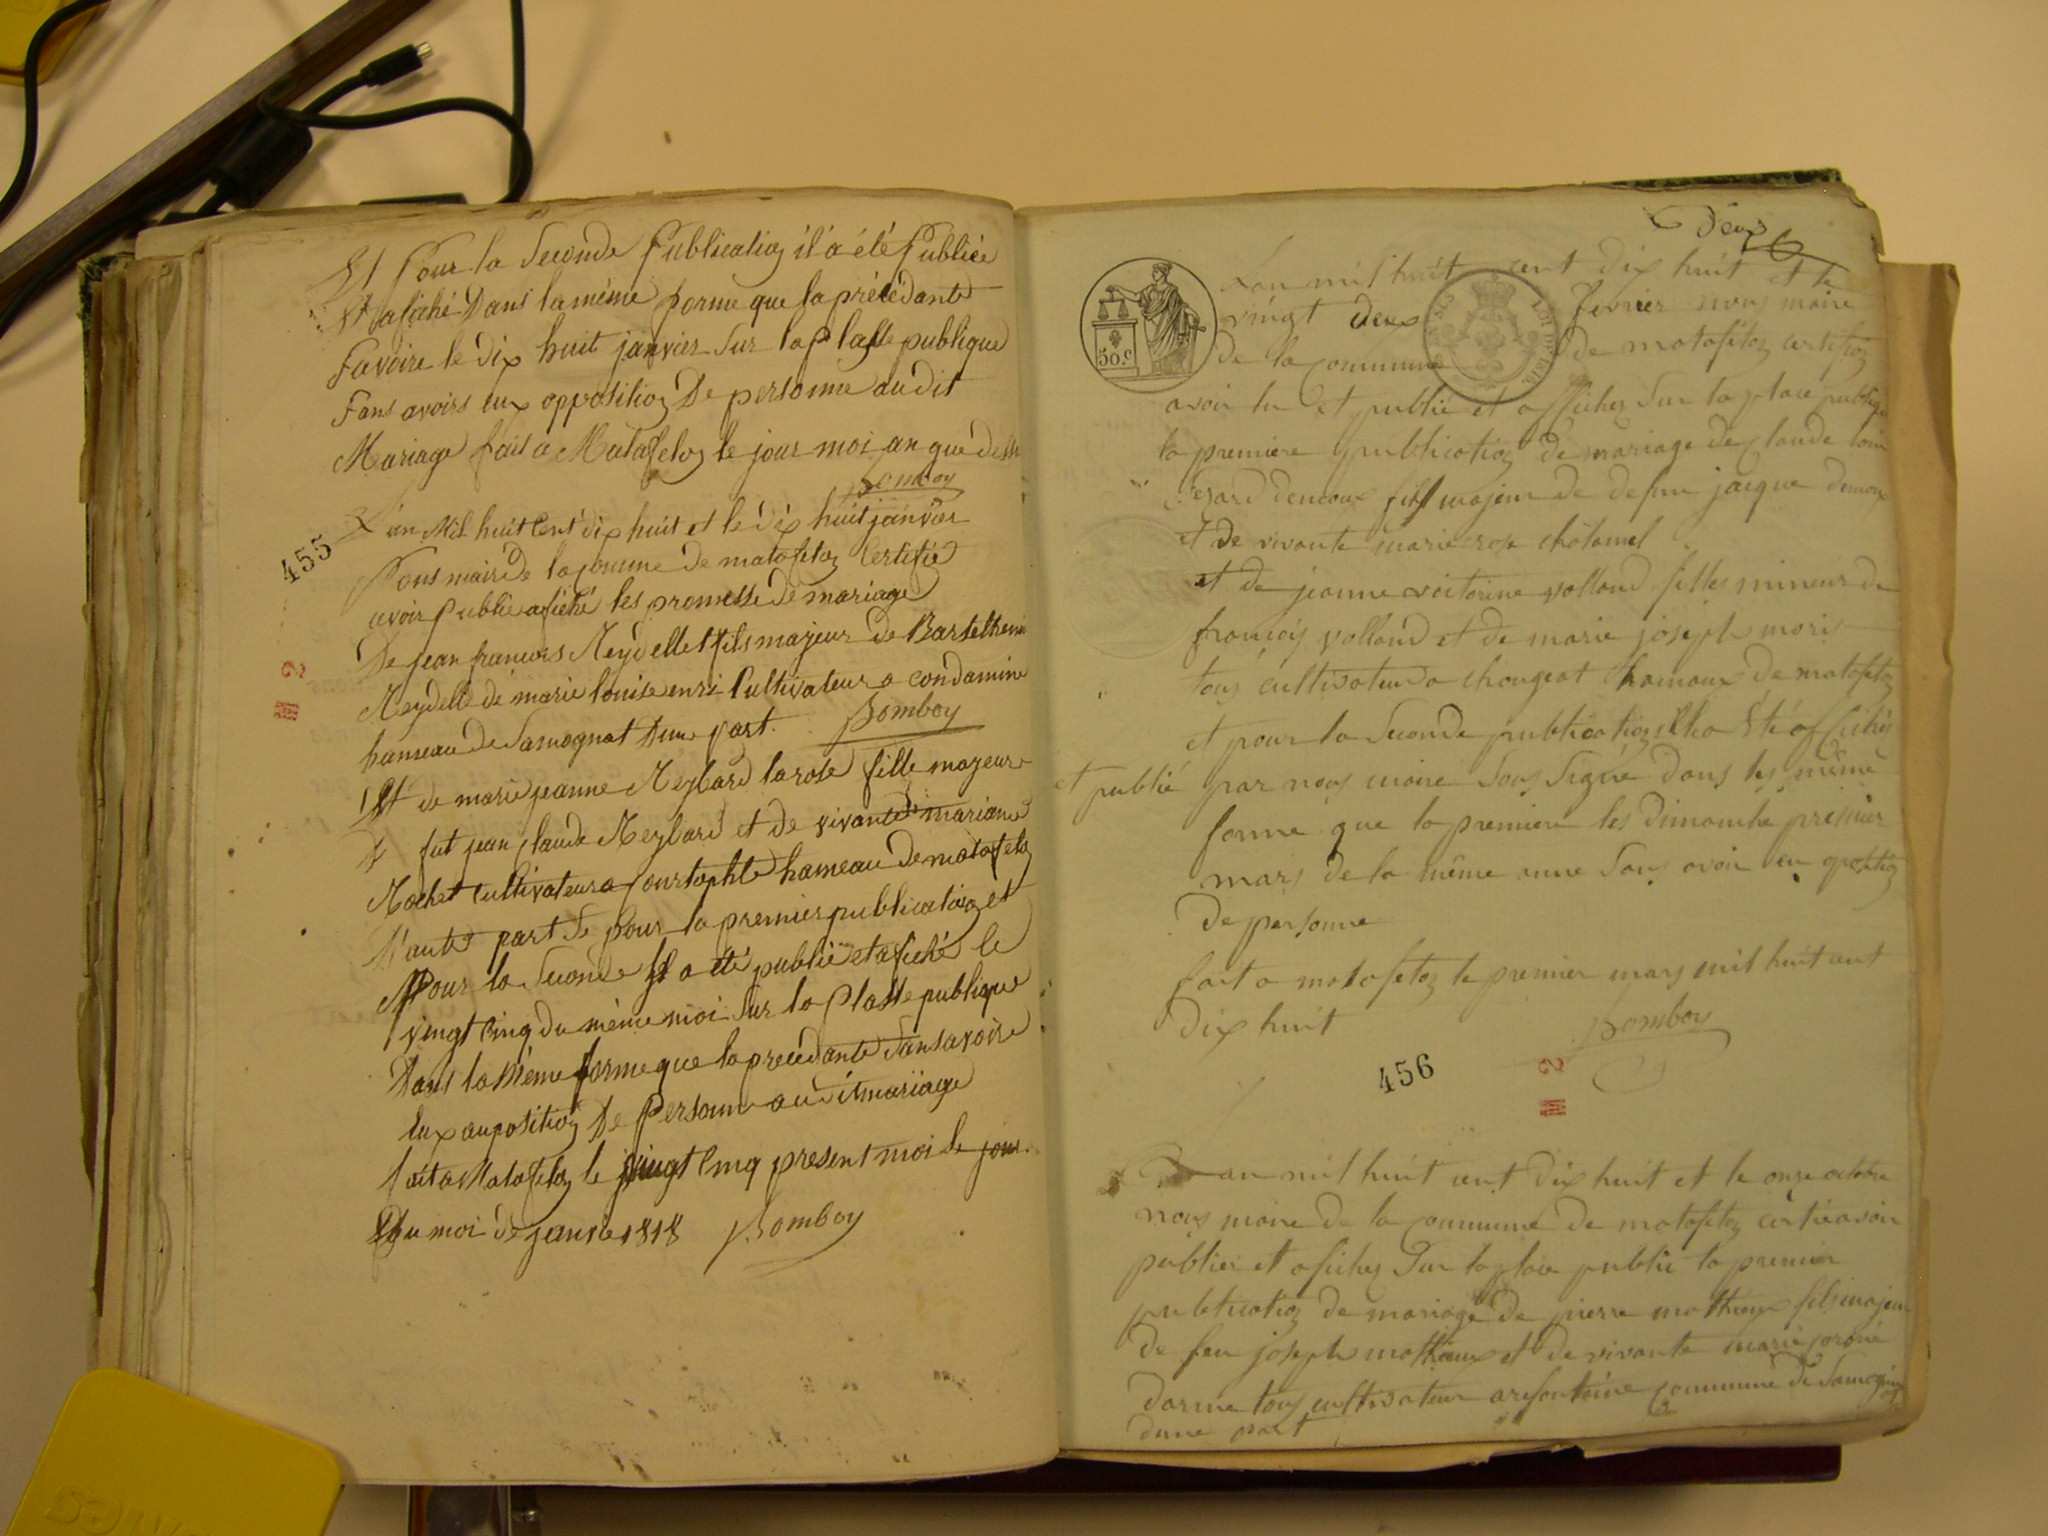 Et Pour la Seconde Publication il a été Publiée
Et afiché Dans la même forme que la précédante
Savoire le dix huit janvier Sur la Plasse publique
Sans avoirs eux opposition De personne audit
Mariage fait a Matafelon le jour moi an que dessu
Bomboy
455
L'an Mil huit Cent dix huit et le dix huit janvier
Nous maire de la comune de matafelon Certifie
avoir Publié afiché les promesse de mariage
De jean francois Neydellet fils majeur de Bartelhemi
Neydelle de marie louise enri Cultivateur a condamine
hameau de Samognat Dune part. Bomboy
Et de marie jeanne Neybard larose fille mageure
fut jean Claude Neybard et de vivante mariane
Nochet Cultivateur a Courtophle hameau de matafelon
l'autre part Se pour la premier publication et
Pour la Seconde Il a été publié et afiché le
vingt Cinq du même moi Sur la Plasse publique
Dans la Même forme que la precédante Sans avoire
eux auposition De Personne au dit mariage
fait a Matafelon le vingt Cinq present moi le jour
Du moi de janvie 1818 Bomboy
2
Deux
50 c
Lan mil huit cent dix huit et le
vingt deux fevrier nous maire
de la commune de matafelon certifion
avoir lu et publié et afficher Sur la place publique
la premiere publication de mariage de Claude
demoux fils majeur de defun jacque demoux
et de vivante marie rose chatanel
et de jeanne volland filles mineur de
francois volland et de marie joseph moris
tous cultivateur a chougeat hamaux de matafelon
et pour la Seconde publication Elle a Eté affichés
et publié par nous maire Sous Signé dans les même
forme que la premiere les dimanche premier
mars de la même anne Sans avoir eu oposition
De personne
fait a matafelon le premier mars mil huit cent
Dix huit Bomboy
456
2
Lan mil huit cent dix huit et le onze octobre
nous maire de la Commune de matafelon avoir
publier et aficher Sur la place public la premier
publication de mariage de pierre mathieux fils majeur
de feu joseph mathieux et de vivante marie
darme tous cultivateur a commune de Samognat
dune part